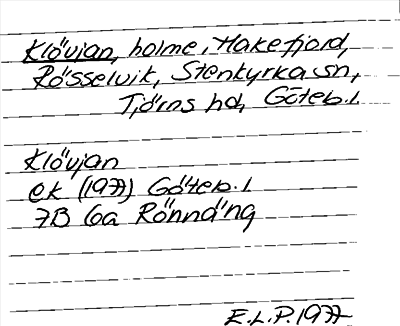 Klövjan, holme, Hakefjord,
Rösselvik, Stenkyrka sn,
Tjörns hd, Göteb.l.
Klövjan
ek (1977) Göteb.l
7B 6a Rönnäng
E.L.P. 1977